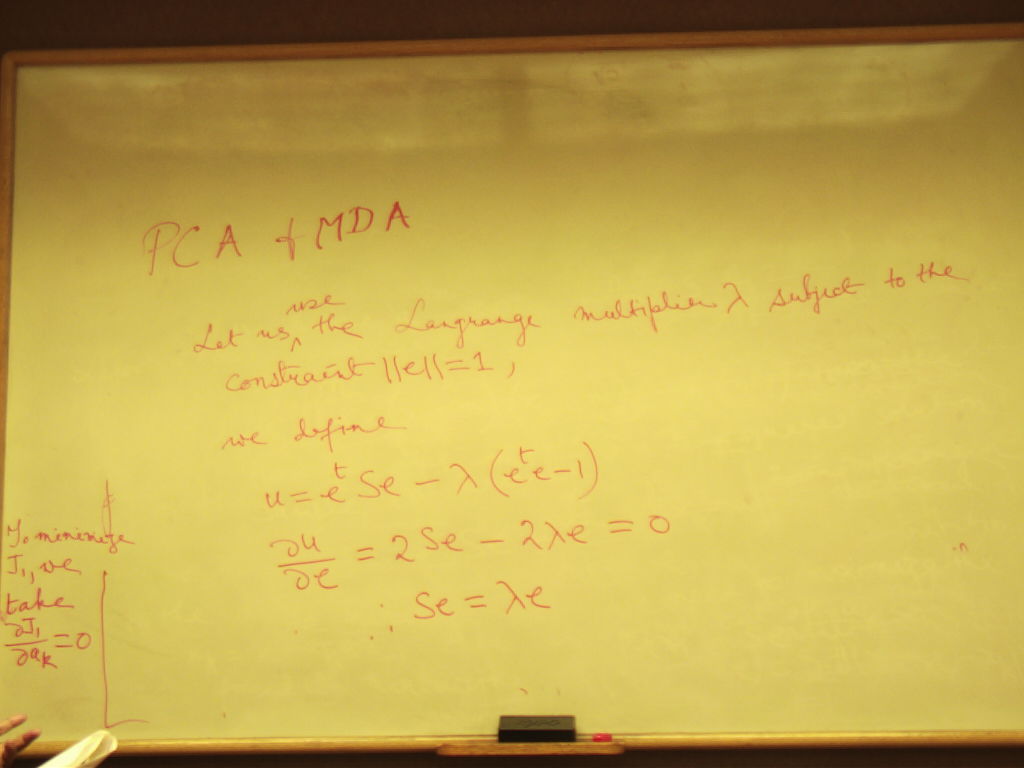 PCA & MDA
use
Let us, the Langrange multiplier λ subject to the
constraint ||e||=1,
we define
u = eᵗ Se − λ (eᵗe − 1)
∂u/∂e = 2Se − 2λe = 0
∴ Se = λe
To minimize
J₁, we
take
∂J₁/∂aₖ = 0